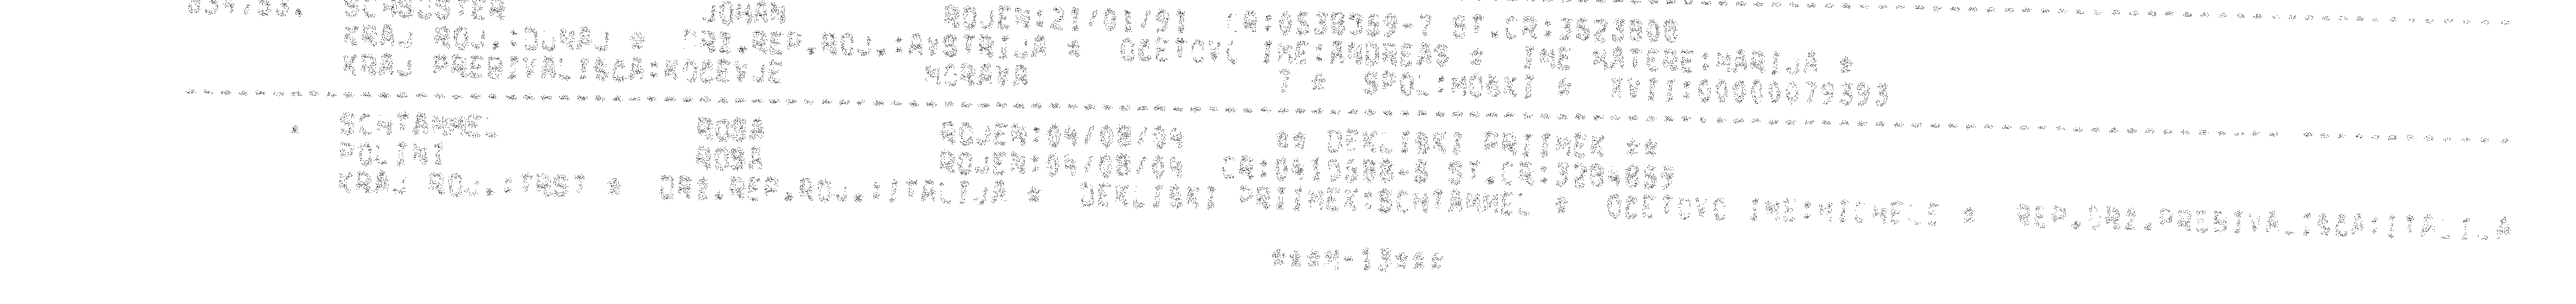 034783. SCHUSTER JOHAN ROJEN:21/01/91 CR:0538359-7 ST.CR:3523800
KRAJ ROJ.:DUNAJ * DRZ.REP.ROJ.:AVSTRIJA * OCETOVO IME:ANDREAS * IME MATERE:MARIJA *
KRAJ PREBIVALISCA:KOCEVJE MORAVA 7 * SPOL:MOSKI * XVII:00000079393
* SCHTAMMEL ROSA ROJEN:04/08/04 ** DEKLISKI PRIIMEK **
POLINI ROSA ROJEN:04/08/04 CR:0415588-8 ST.CR:3284859
KRAJ ROJ.:TRST * DRZ.REP.ROJ.:ITALIJA * DEKLISKI PRIIMEK:SCHTAMMEL * OCETOVO IME:MICHELE * REP.DRZ.PREBIVALISCA:ITALIJA
***M-13***